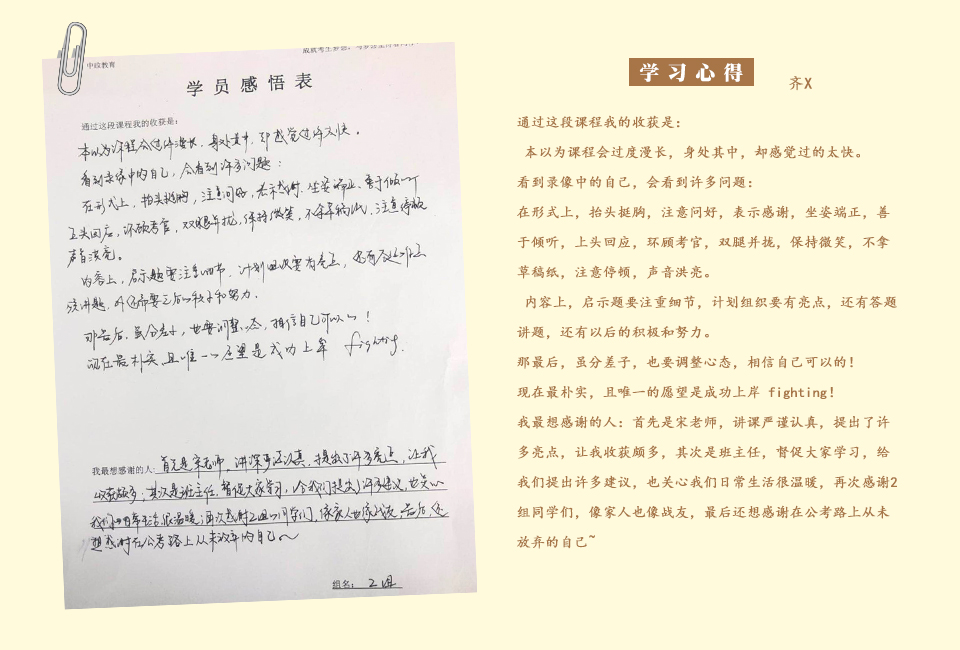 中综教育
学 员 感 悟 表
通过这段课程我的收获是:
本以为课程会过度漫长，身处其中，却感觉过得太快。
看到录像中的自己，会看到许多问题:
在形式上，抬头挺胸，注意问好，表示感谢，坐姿端正，善于倾听
上头回应，环顾考官，双腿并拢，保持微笑，不拿草稿纸，注意停顿
声音洪亮。
内容上，启示题要注重细节，计划组织要有亮点，还有
讲题，和努力.
那最后，虽分差子，也要调整心态，相信自己可以的!
现在最朴实，且唯一的愿望是成功上岸 fighting.
我最想感谢的人: 首先是宋老师，讲课严谨认真，提出了许多亮点，让我
收获颇多；其次是班主任，督促大家学习，给我们提出了许多建议，也关心
我们日常生活，很温暖；再次感谢2组的同学们，像家人也像战友，最后还
想感谢在公考路上从未放弃的自己~
组名: 2组
学习心得
齐X
通过这段课程我的收获是:
本以为课程会过度漫长，身处其中，却感觉过的太快。
看到录像中的自己，会看到许多问题:
在形式上，抬头挺胸，注意问好，表示感谢，坐姿端正，善
于倾听，上头回应，环顾考官，双腿并拢，保持微笑，不拿
草稿纸，注意停顿，声音洪亮。
内容上，启示题要注重细节，计划组织要有亮点，还有答题
讲题，还有以后的积极和努力。
那最后，虽分差子，也要调整心态，相信自己可以的!
现在最朴实，且唯一的愿望是成功上岸 fighting!
我最想感谢的人: 首先是宋老师，讲课严谨认真，提出了许
多亮点，让我收获颇多，其次是班主任，督促大家学习，给
我们提出许多建议，也关心我们日常生活很温暖，再次感谢2
组同学们，像家人也像战友，最后还想感谢在公考路上从未
放弃的自己~